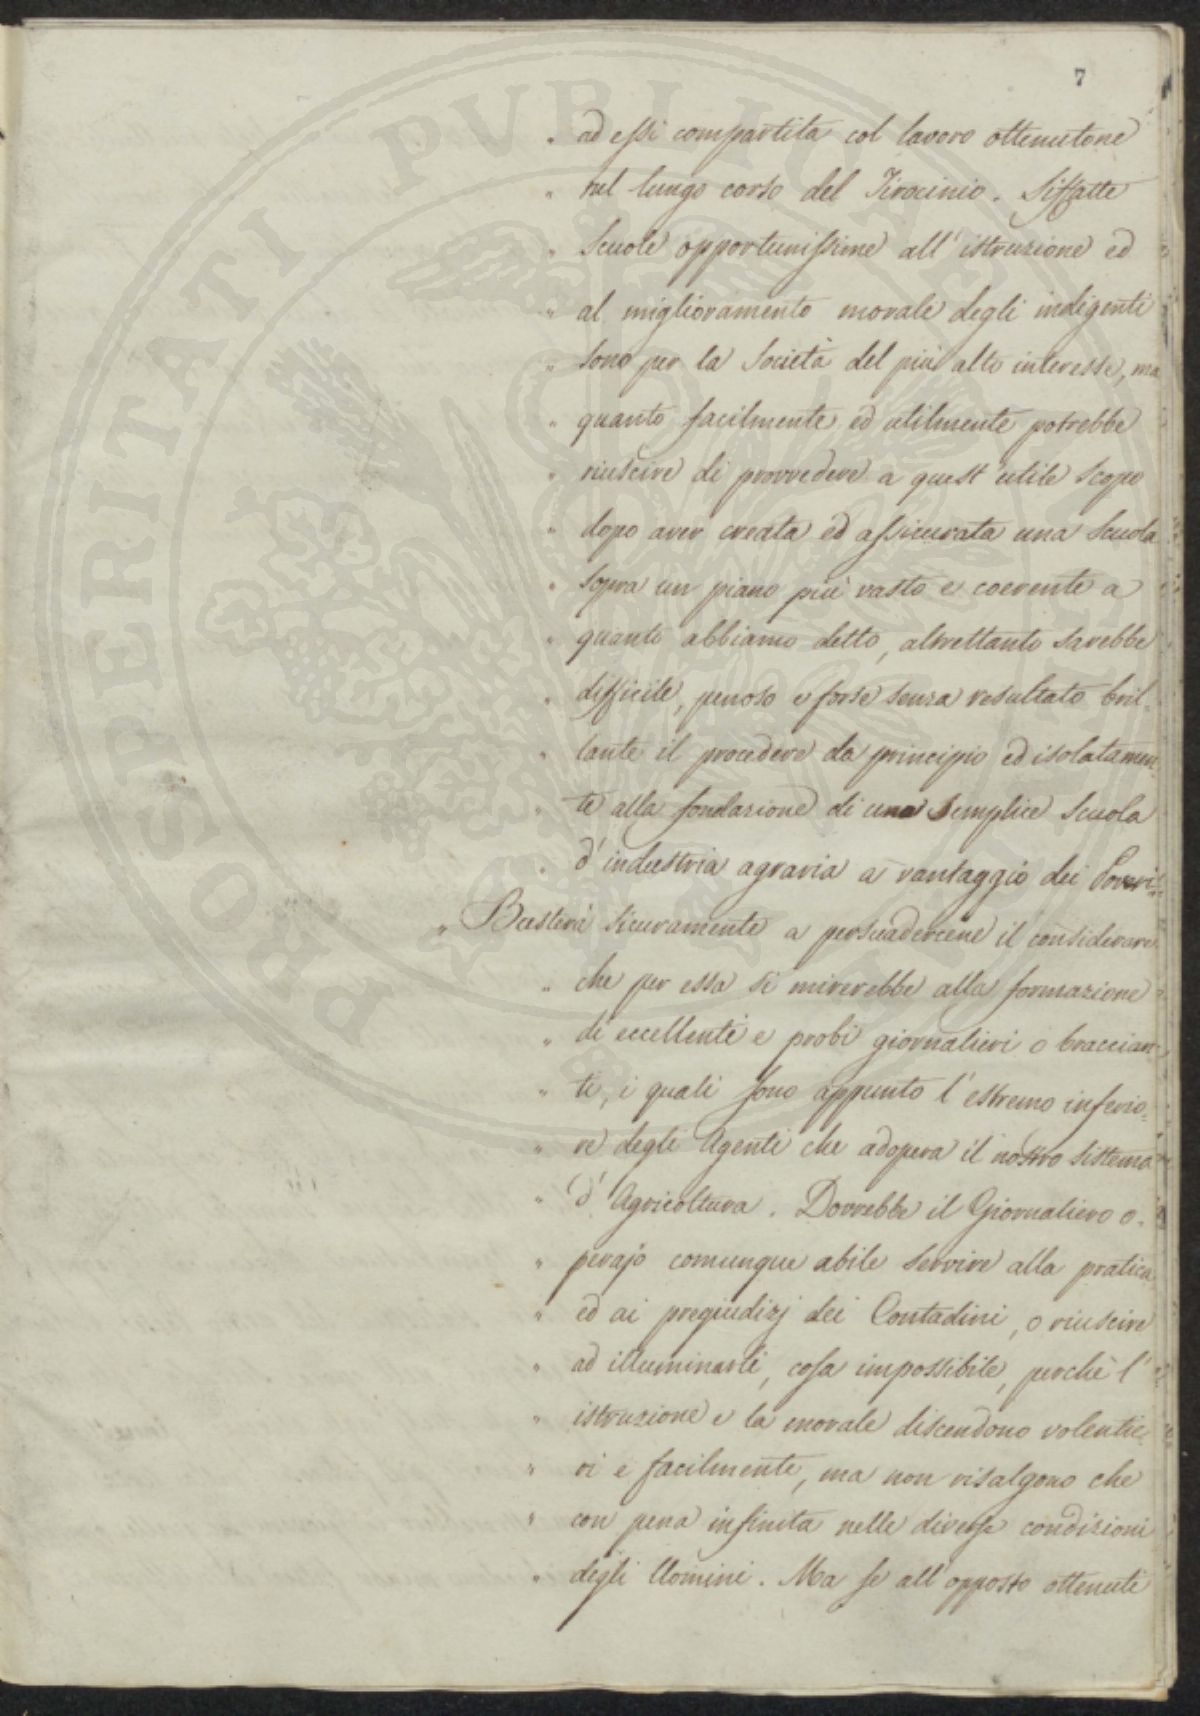 7
" ad essi compartita col lavoro ottenutone
" nel lungo corso del Tirocinio. Siffatte
" Scuole opportunissime all'istruzione ed
" al miglioramento morale degli indigenti
" sono per la Società del più alto interesse, ma
" quanto facilmente ed utilmente potrebbe
" riuscire di provvedere a quest'utile scopo
" dopo aver creata ed assicurata una Scuola
" sopra un piano più vasto e coerente a
" quanto abbiamo detto, altrettanto sarebbe
" difficile, penoso e forse senza resultato bril-
" lante il procedere da principio ed isolatamen-
" te alla fondazione di una Semplice Scuola
" d'industria agraria a vantaggio dei Poveri:
" Basterà sicuramente a persuadercene il considerare
" che per essa si mirerebbe alla formazione
" di eccellenti e probi giornalieri o braccian-
" ti, i quali sono appunto l'estremo inferio-
" re degli Agenti che adopera il nostro sistema
" d'Agricoltura. Dovrebbe il Giornaliero o-
" perajo comunque abile servire alla pratica
" ed ai pregiudizj dei Contadini, o riuscire
" ad illuminarli, cosa impossibile, perchè l'
" istruzione e la morale discendono volentie-
" ri e facilmente, ma non risalgono che
" con pena infinita nelle diverse condizioni
" degli Uomini. Ma se all'opposto ottenuti
PROSPERITATI PVBLICAE